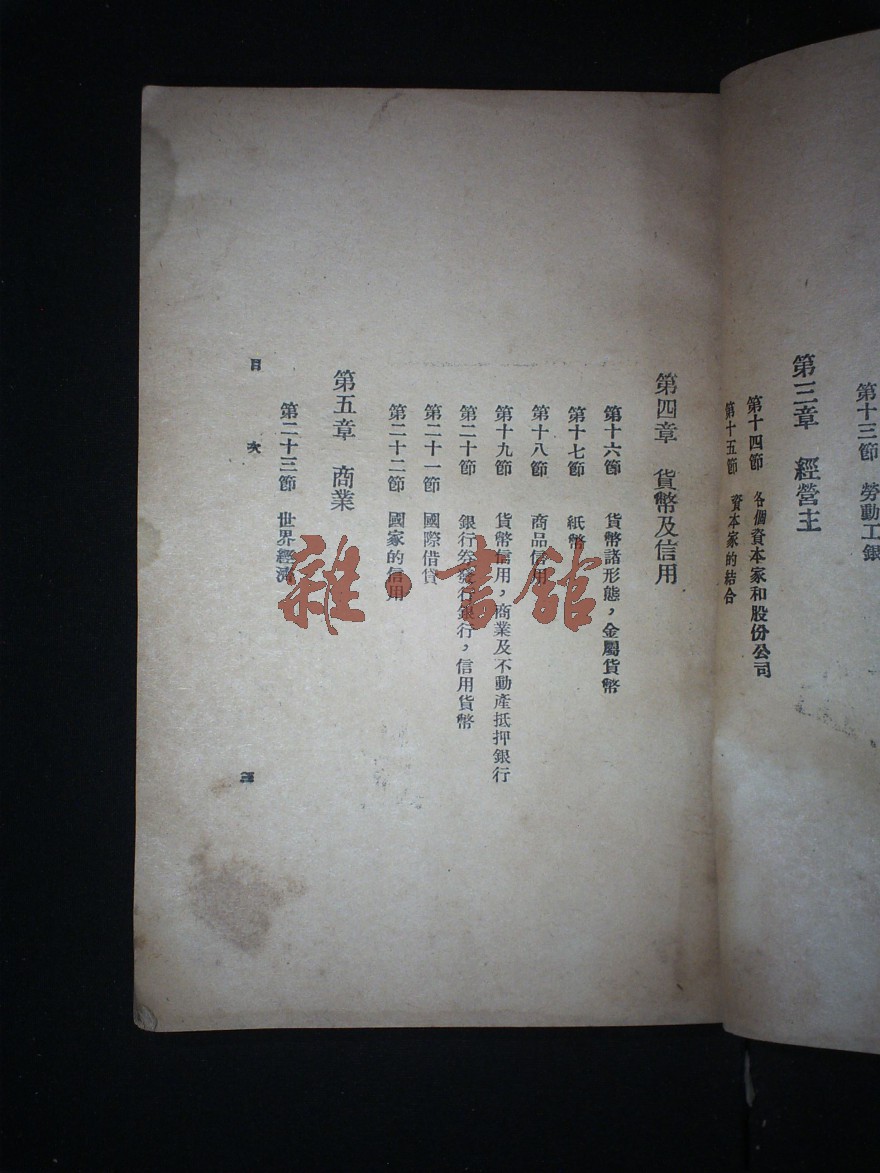 第十三節　勞動工銀
第三章　經營主
第十四節　各個資本家和股份公司
第十五節　資本家的結合
第四章　貨幣及信用
第十六節　貨幣諸形態，金屬貨幣
第十七節　紙幣
第十八節　商品信用
第十九節　貨幣信用，商業及不動產抵押銀行
第二十節　銀行券發行銀行，信用貨幣
第二十一節　國際借貸
第二十二節　國家的信用
第五章　商業
第二十三節　世界經濟
目次
三
雜·書館